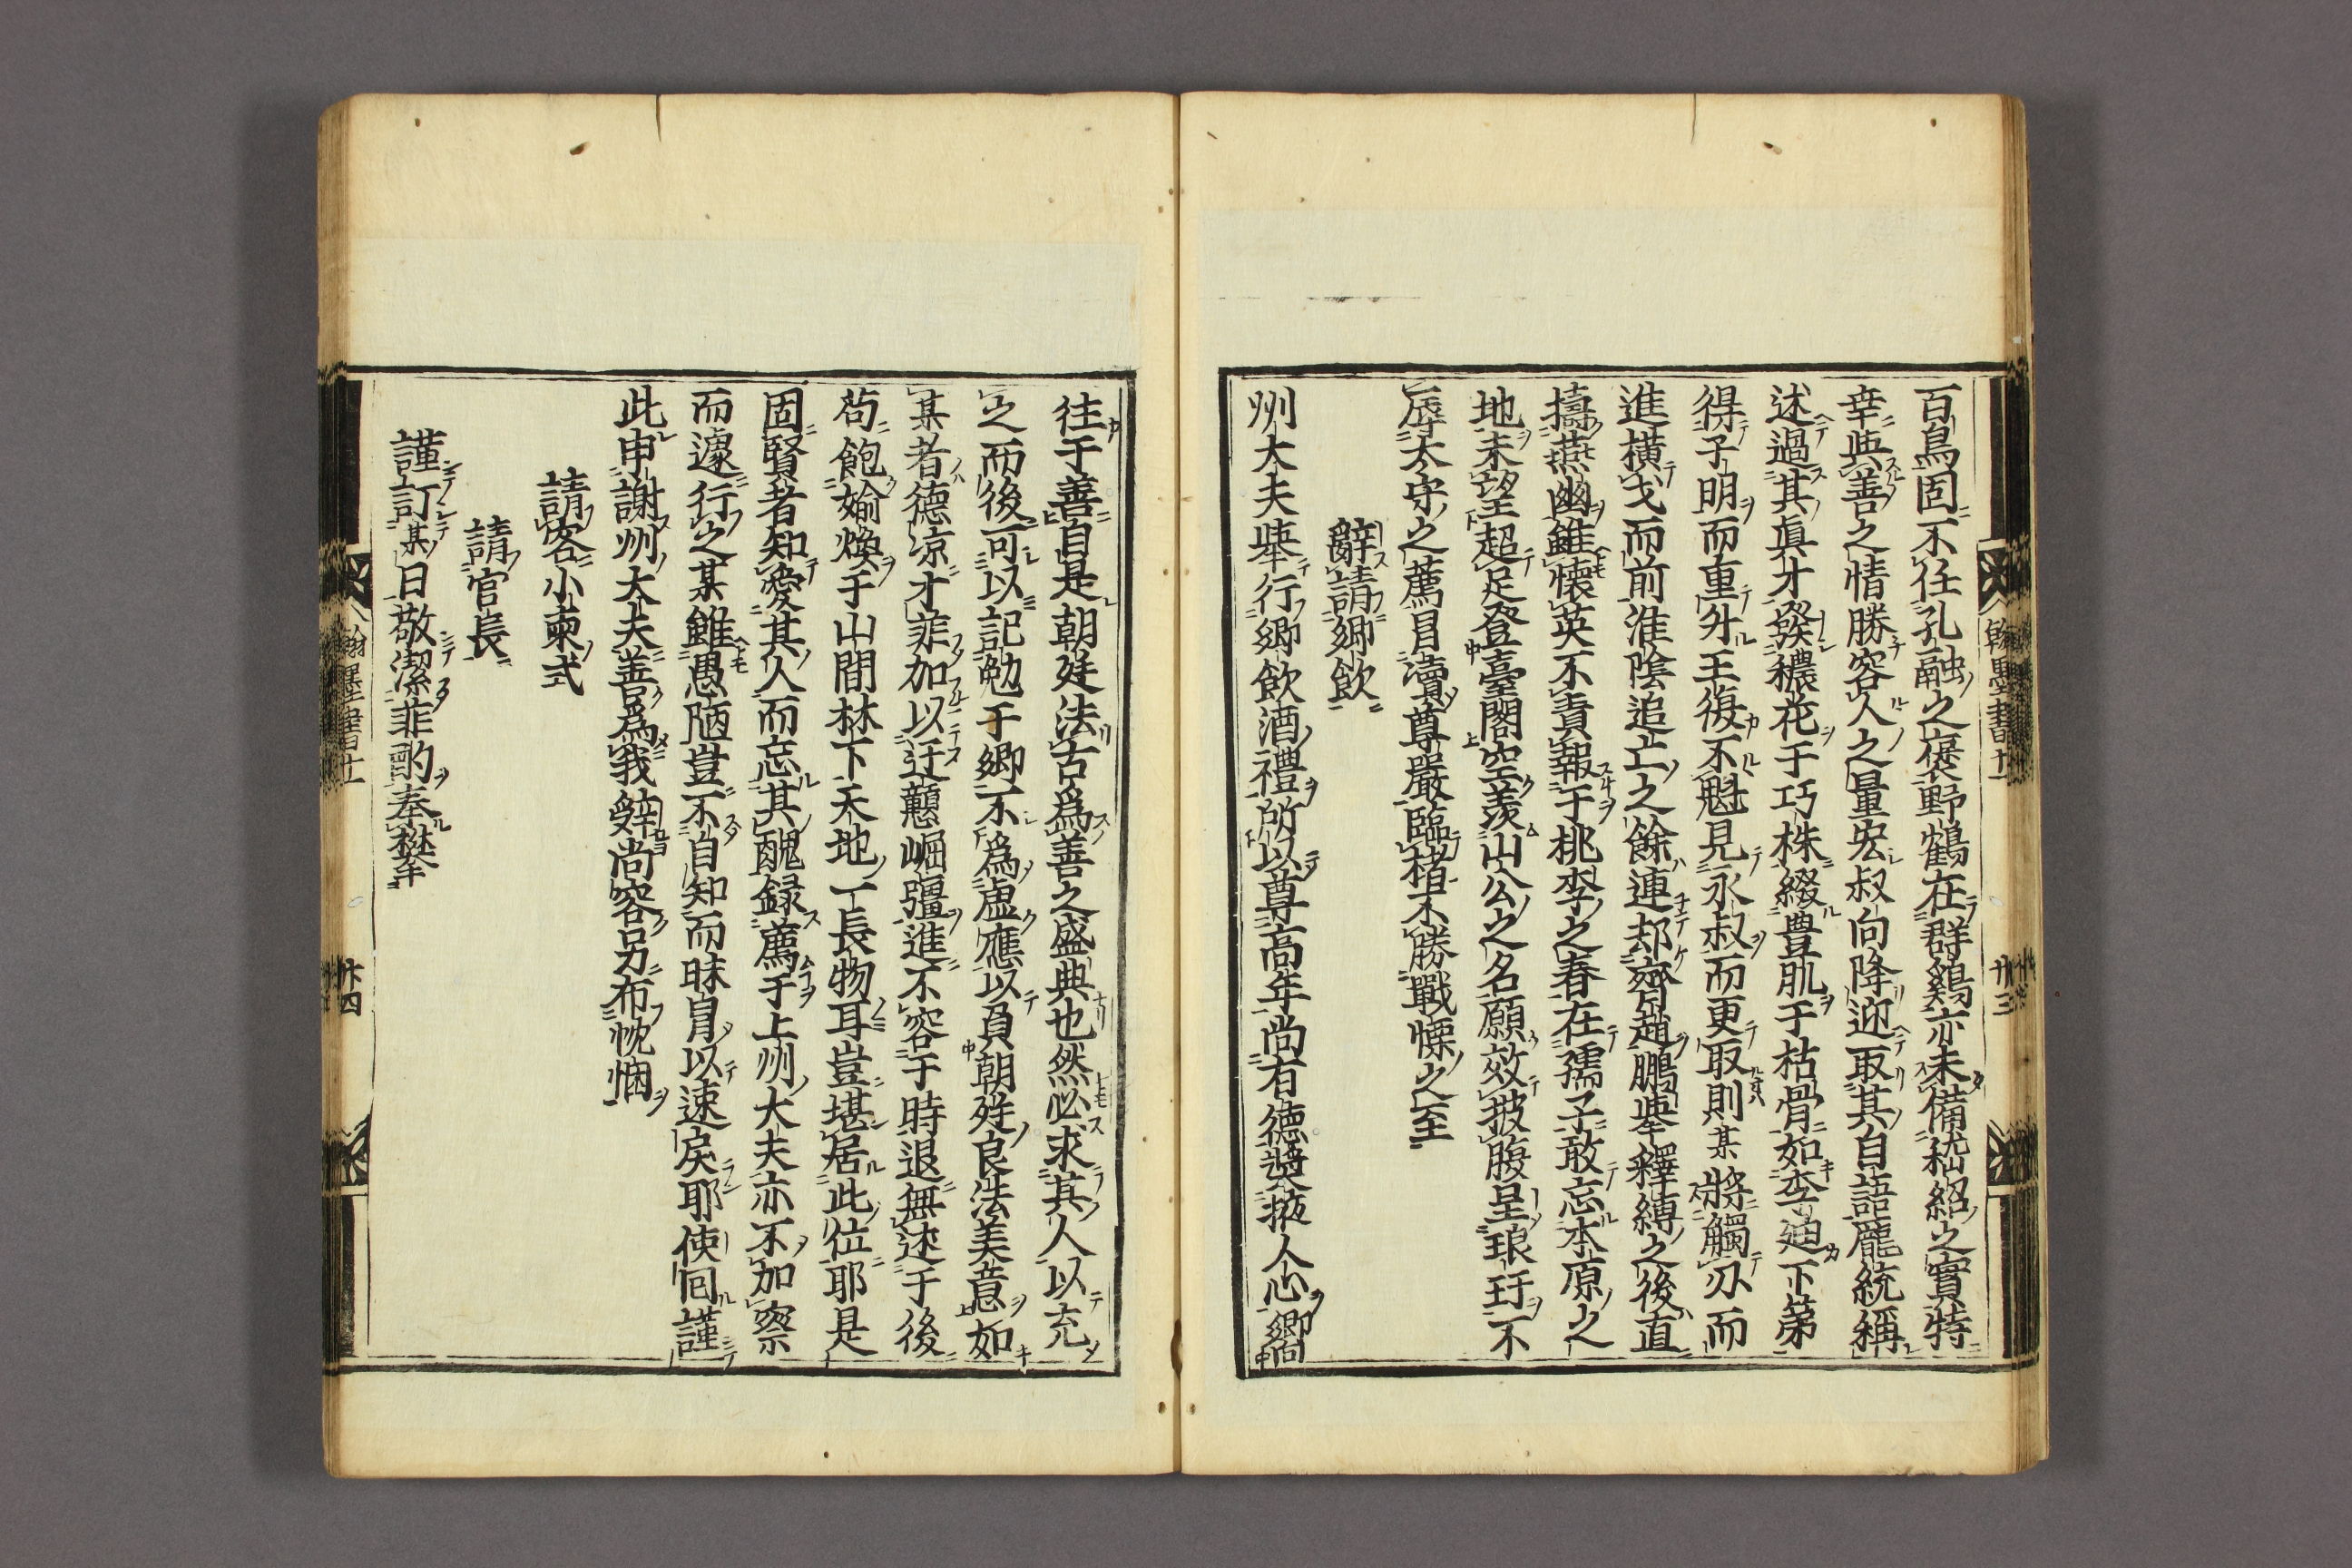 百鳥固不任孔融之褒野鶴在群鷄亦未備嵇紹之實特
幸與善之情勝容人之量宏叔向降迎取其自語龐統稱
述過其眞才發穠花于巧株綴豊肌于枯骨如李廸下第
得子明而重升王復不魁見永叔而更取則某將觸刃而
進橫戈而前淮陰追亡之餘連却齊趙鵬擧釋縛之後直
擣燕幽雖懷英不責報于桃李之春在孺子敢忘本原之
地未望超足登臺閣空羨山公之名願效披腹呈琅玕不
辱太守之薦冒瀆尊嚴臨楮不勝戰慄之至
辭請鄉飲
州大夫擧行鄉飲酒禮所以尊高年尚有德奬掖人心鄉
翰墨書十一
廿三
往于善自是朝廷法古爲善之盛典也然必求其人以充
之而後可以記勉于鄉不爲虛應以負朝廷良法美意如
某者德凉才菲加以迂戇崛彊進不容于時退無述于後
苟飽媮煥于山間林下天地丁長物耳豈堪居此位耶是
固賢者知愛其人而忘其醜録薦于上州大夫亦不加察
而遽行之某雖愚陋豈不自知而昧冐以速戾耶使回謹
此申謝州大夫善爲我辤尚容另布忱悃
請客小柬式
請官長
謹訂某日敬潔菲酌奉攀
翰墨書十一
廿四